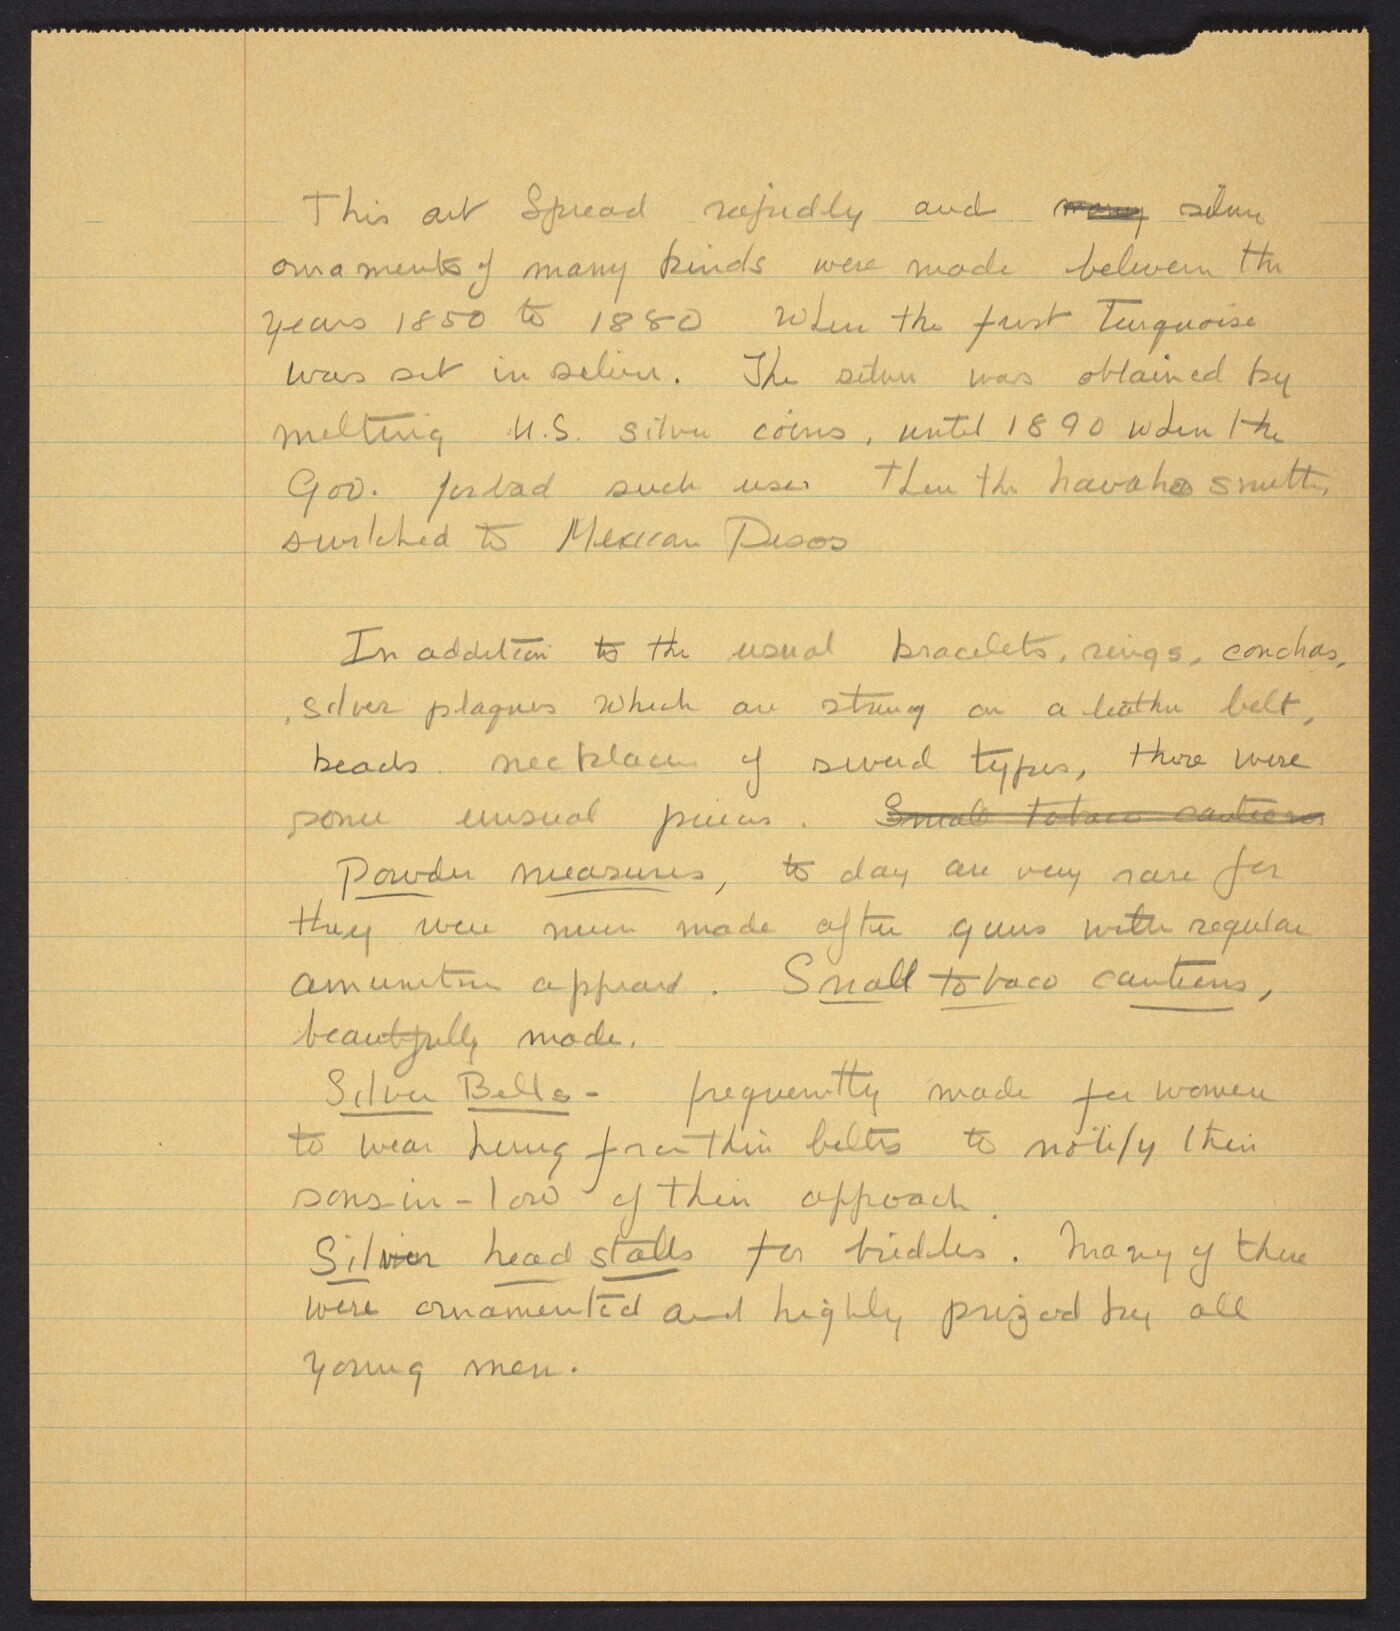 This art Spread rapidly and many silver
ornaments of many kinds were made between the
years 1850 to 1880 when the first Turquoise
was set in silver. The silver was obtained by
melting U.S. silver coins, until 1890 when the
Gov. forbad such use. Then the navaho smiths
switched to Mexican Pesos
In addition to the usual bracelets, rings, conchas,
silver plaques which are strung on a leather belt,
beads. necklaces of several types, there were
some unusual pieces. Small tobaco canteens
Powder measures, to day are very rare for
they were never made after guns with regular
amunition appeard. Small tobaco canteens,
beautifully made.
Silver Bells - frequently made for women
to wear hung from their belts to notify their
sons-in-law of their approach.
Silver head stalls for bridles. Many of these
were ornamented and highly prized by all
young men.